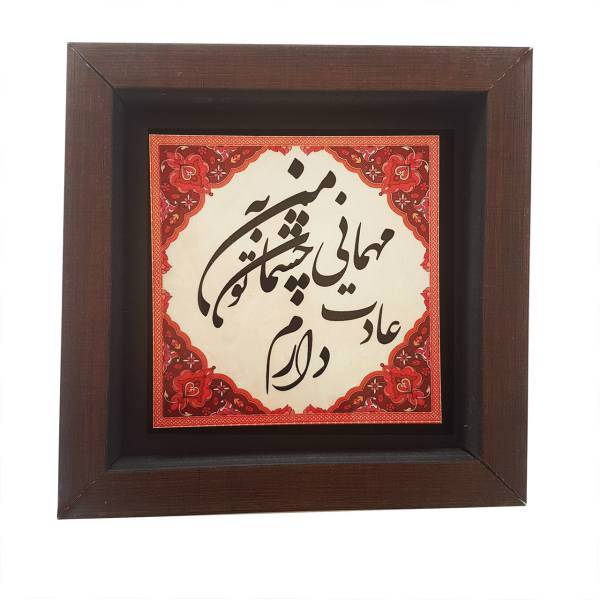 من به
مهمانی چشمان تو
عادت
دارم